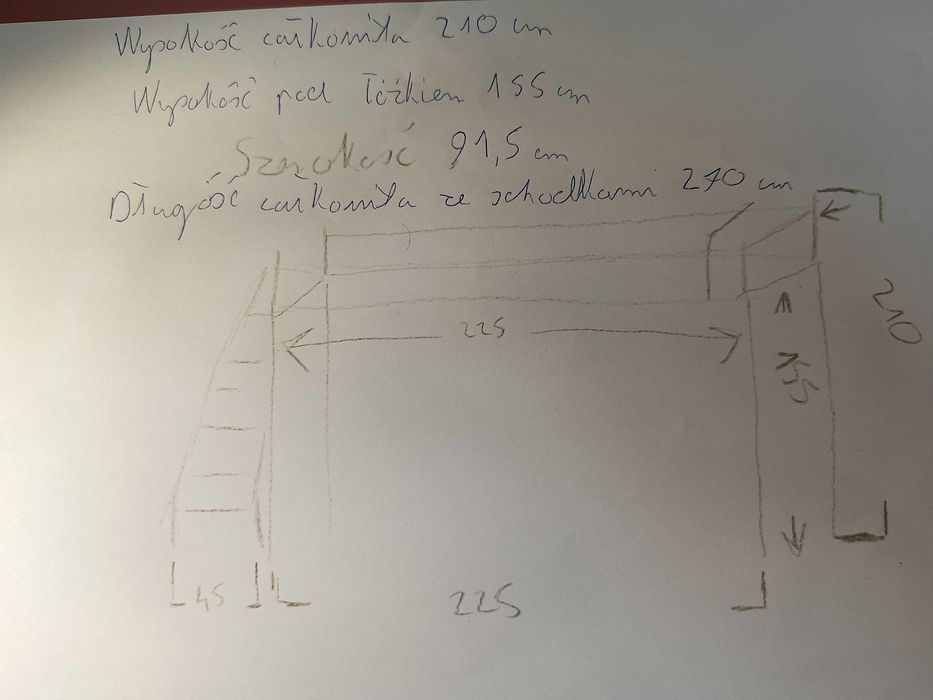 Wysokość całkowita 210 cm
Wysokość pod łóżkiem 155 cm
Szerokość 91,5 cm
Długość całkowita ze schodkami 270 cm
225
210
155
45
225